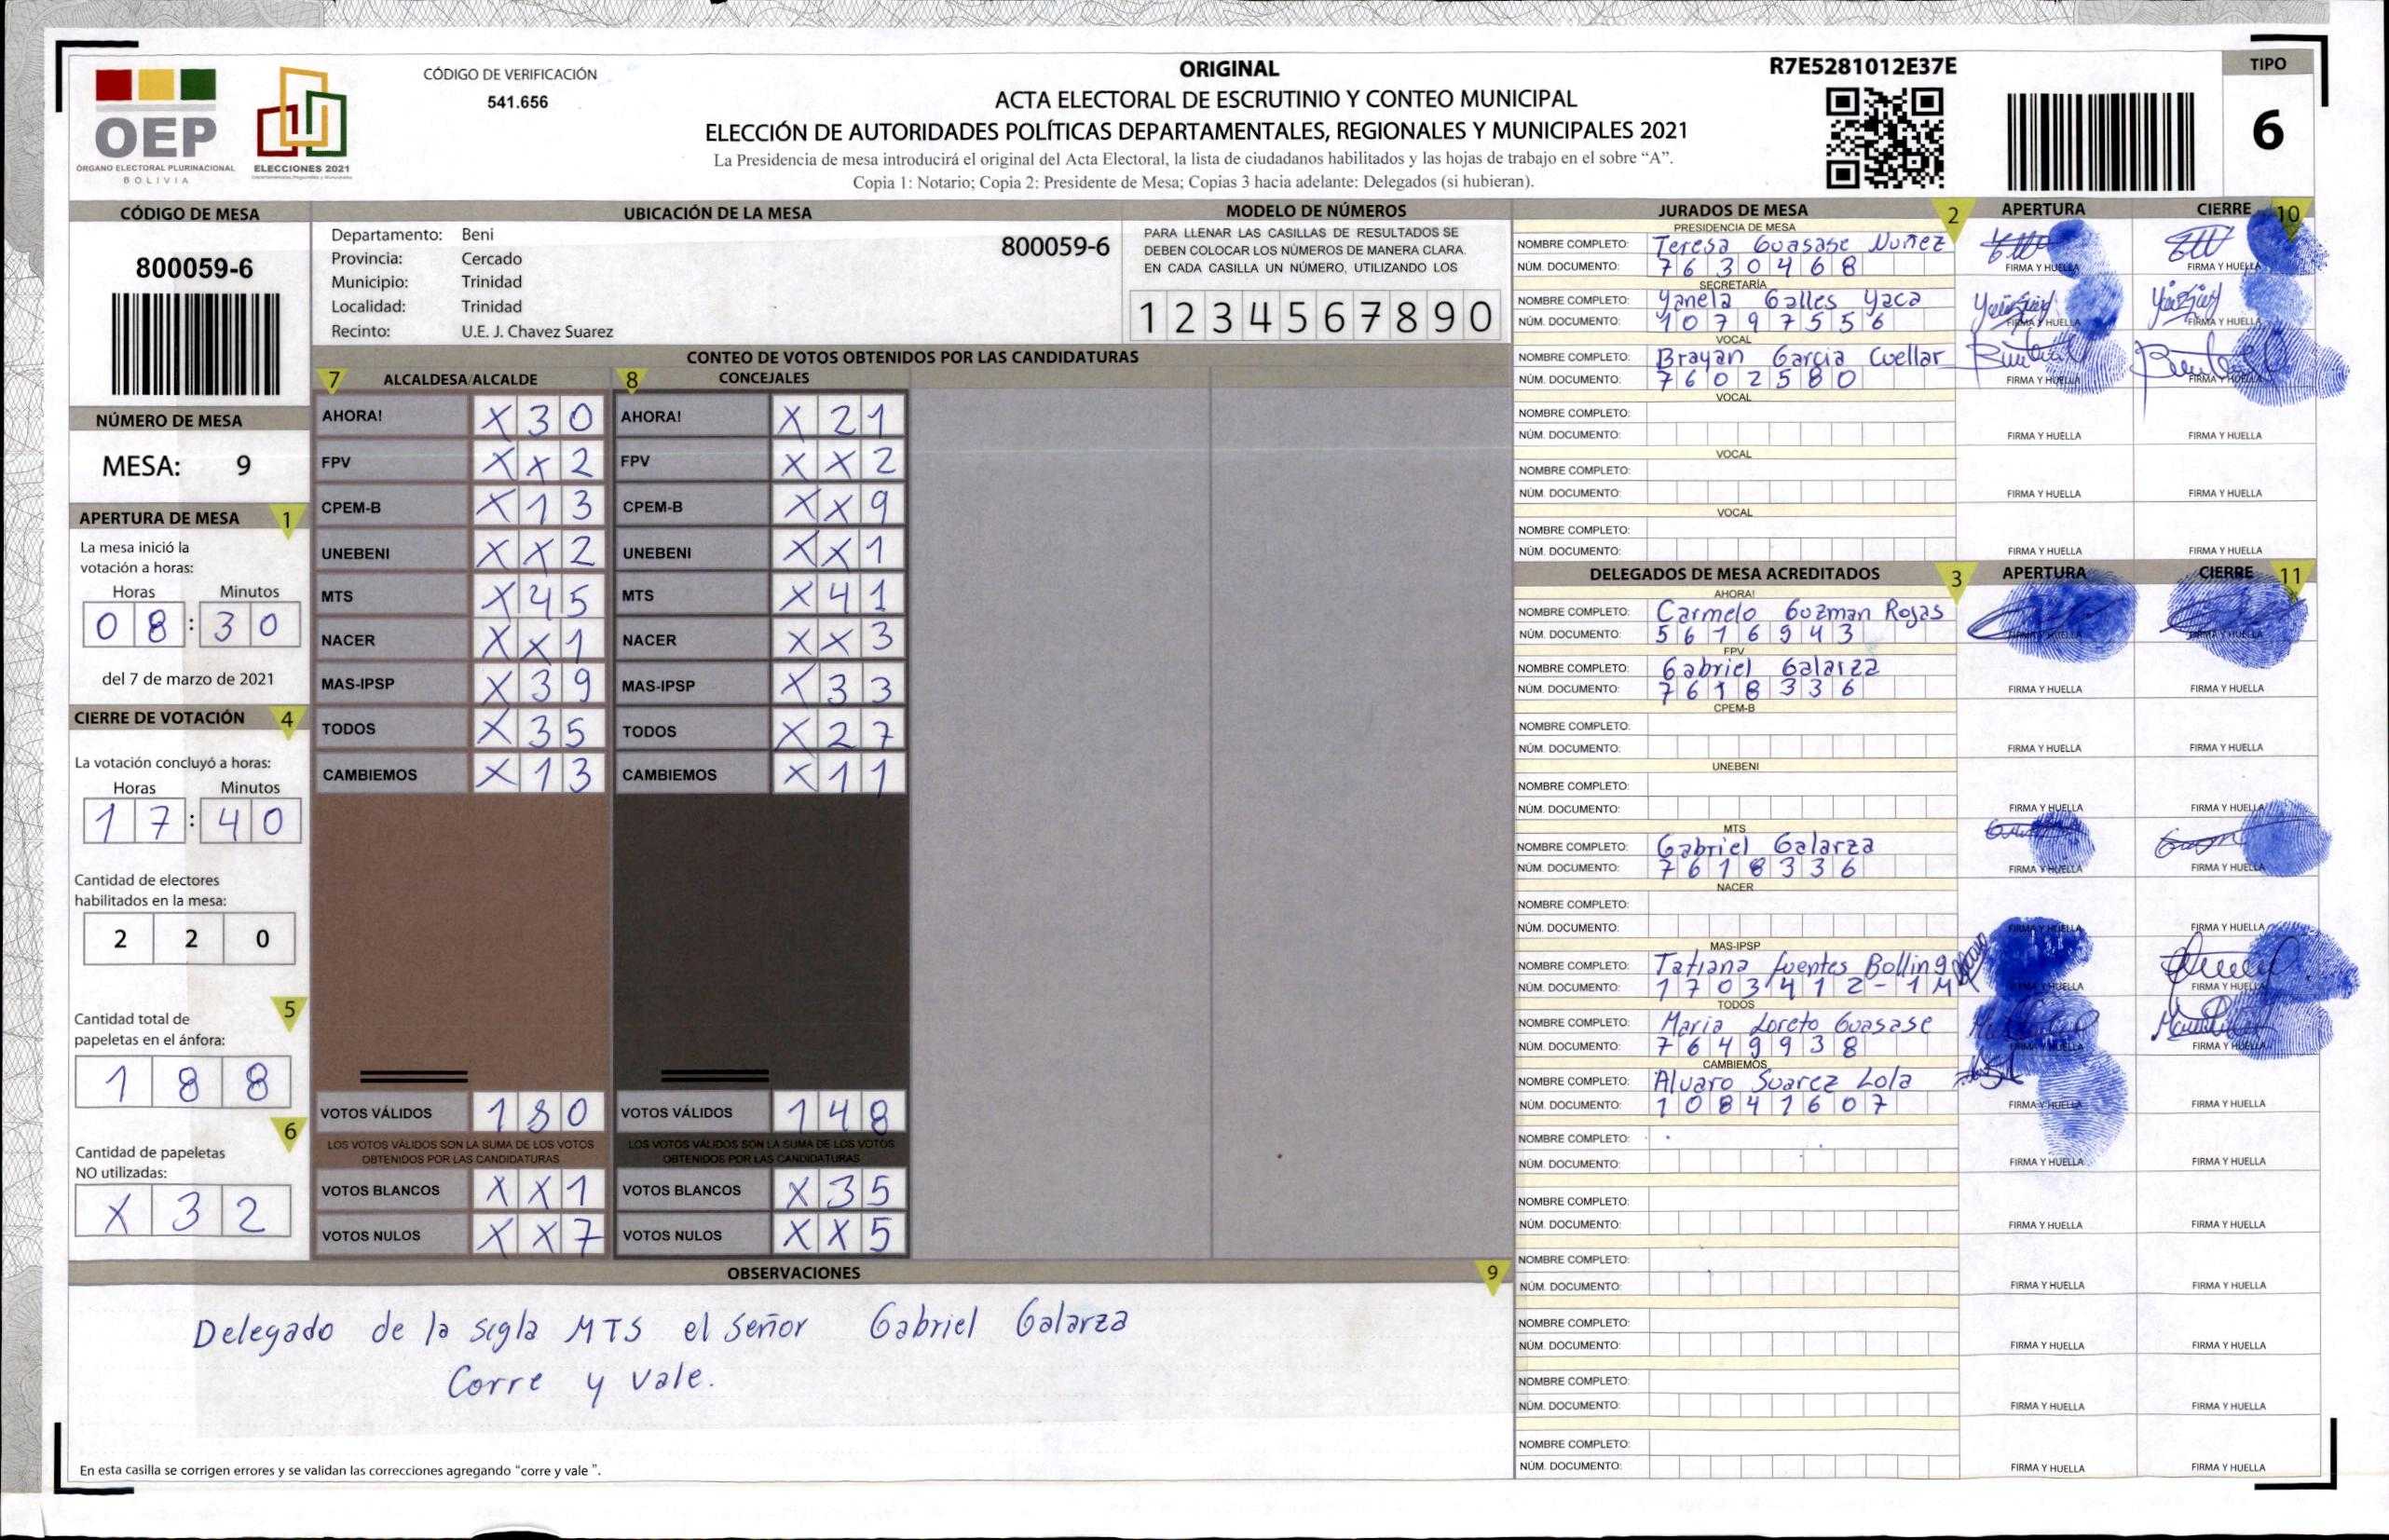 CÓDIGO DE VERIFICACIÓN
541.656
ORIGINAL
ACTA ELECTORAL DE ESCRUTINIO Y CONTEO MUNICIPAL
ELECCIÓN DE AUTORIDADES POLÍTICAS DEPARTAMENTALES, REGIONALES Y MUNICIPALES 2021
La Presidencia de mesa introducirá el original del Acta Electoral, la lista de ciudadanos habilitados y las hojas de trabajo en el sobre “A”.
Copia 1: Notario; Copia 2: Presidente de Mesa; Copias 3 hacia adelante: Delegados (si hubieran).
R7E5281012E37E
TIPO
6
OEP
ÓRGANO ELECTORAL PLURINACIONAL
BOLIVIA
ELECCIONES 2021
CÓDIGO DE MESA
800059-6
NÚMERO DE MESA
MESA: 9
APERTURA DE MESA 1
La mesa inició la
votación a horas:
Horas Minutos
08:30
del 7 de marzo de 2021
CIERRE DE VOTACIÓN 4
La votación concluyó a horas:
Horas Minutos
17:40
Cantidad de electores
habilitados en la mesa:
220
5
Cantidad total de
papeletas en el ánfora:
188
6
Cantidad de papeletas
NO utilizadas:
X32
UBICACIÓN DE LA MESA
Departamento: Beni
800059-6
Provincia: Cercado
Municipio: Trinidad
Localidad: Trinidad
Recinto: U.E. J. Chavez Suarez
MODELO DE NÚMEROS
PARA LLENAR LAS CASILLAS DE RESULTADOS SE
DEBEN COLOCAR LOS NÚMEROS DE MANERA CLARA.
EN CADA CASILLA UN NÚMERO, UTILIZANDO LOS
1 2 3 4 5 6 7 8 9 0
CONTEO DE VOTOS OBTENIDOS POR LAS CANDIDATURAS
7 ALCALDESA/ALCALDE 8 CONCEJALES
AHORA! X30 AHORA! X21
FPV XX2 FPV XX2
CPEM-B X13 CPEM-B XX9
UNEBENI XX2 UNEBENI XX1
MTS X45 MTS X41
NACER XX1 NACER XX3
MAS-IPSP X39 MAS-IPSP X33
TODOS X35 TODOS X27
CAMBIEMOS X13 CAMBIEMOS X11
VOTOS VÁLIDOS 180 VOTOS VÁLIDOS 148
LOS VOTOS VÁLIDOS SON LA SUMA DE LOS VOTOS LOS VOTOS VÁLIDOS SON LA SUMA DE LOS VOTOS
OBTENIDOS POR LAS CANDIDATURAS OBTENIDOS POR LAS CANDIDATURAS
VOTOS BLANCOS XX1 VOTOS BLANCOS X35
VOTOS NULOS XX7 VOTOS NULOS XX5
OBSERVACIONES 9
Delegado de la sigla MTS el señor Gabriel Galarza
Corre y vale.
En esta casilla se corrigen errores y se validan las correcciones agregando “corre y vale ”.
JURADOS DE MESA 2 APERTURA CIERRE 10
PRESIDENCIA DE MESA
NOMBRE COMPLETO: Teresa Guasase Nuñez
NÚM. DOCUMENTO: 7630468 FIRMA Y HUELLA FIRMA Y HUELLA
SECRETARÍA
NOMBRE COMPLETO: Yanela Galles Yaca
NÚM. DOCUMENTO: 10797556 FIRMA Y HUELLA FIRMA Y HUELLA
VOCAL
NOMBRE COMPLETO: Brayan Garcia Cuellar
NÚM. DOCUMENTO: 7602580 FIRMA Y HUELLA FIRMA Y HUELLA
VOCAL
NOMBRE COMPLETO:
NÚM. DOCUMENTO: FIRMA Y HUELLA FIRMA Y HUELLA
VOCAL
NOMBRE COMPLETO:
NÚM. DOCUMENTO: FIRMA Y HUELLA FIRMA Y HUELLA
VOCAL
NOMBRE COMPLETO:
NÚM. DOCUMENTO: FIRMA Y HUELLA FIRMA Y HUELLA
DELEGADOS DE MESA ACREDITADOS 3 APERTURA CIERRE 11
AHORA!
NOMBRE COMPLETO: Carmelo Guzman Rojas
NÚM. DOCUMENTO: 5616943 FIRMA Y HUELLA FIRMA Y HUELLA
FPV
NOMBRE COMPLETO: Gabriel Galarza
NÚM. DOCUMENTO: 7618336 FIRMA Y HUELLA FIRMA Y HUELLA
CPEM-B
NOMBRE COMPLETO:
NÚM. DOCUMENTO: FIRMA Y HUELLA FIRMA Y HUELLA
UNEBENI
NOMBRE COMPLETO:
NÚM. DOCUMENTO: FIRMA Y HUELLA FIRMA Y HUELLA
MTS
NOMBRE COMPLETO: Gabriel Galarza
NÚM. DOCUMENTO: 7618336 FIRMA Y HUELLA FIRMA Y HUELLA
NACER
NOMBRE COMPLETO:
NÚM. DOCUMENTO: FIRMA Y HUELLA FIRMA Y HUELLA
MAS-IPSP
NOMBRE COMPLETO: Tatiana fuentes Bolling
NÚM. DOCUMENTO: 1703412-1M FIRMA Y HUELLA FIRMA Y HUELLA
TODOS
NOMBRE COMPLETO: Maria Loreto Guasase
NÚM. DOCUMENTO: 7649938 FIRMA Y HUELLA FIRMA Y HUELLA
CAMBIEMOS
NOMBRE COMPLETO: Alvaro Suarez Lola
NÚM. DOCUMENTO: 10841607 FIRMA Y HUELLA FIRMA Y HUELLA
NOMBRE COMPLETO:
NÚM. DOCUMENTO: FIRMA Y HUELLA FIRMA Y HUELLA
NOMBRE COMPLETO:
NÚM. DOCUMENTO: FIRMA Y HUELLA FIRMA Y HUELLA
NOMBRE COMPLETO:
NÚM. DOCUMENTO: FIRMA Y HUELLA FIRMA Y HUELLA
NOMBRE COMPLETO:
NÚM. DOCUMENTO: FIRMA Y HUELLA FIRMA Y HUELLA
NOMBRE COMPLETO:
NÚM. DOCUMENTO: FIRMA Y HUELLA FIRMA Y HUELLA
NOMBRE COMPLETO:
NÚM. DOCUMENTO: FIRMA Y HUELLA FIRMA Y HUELLA